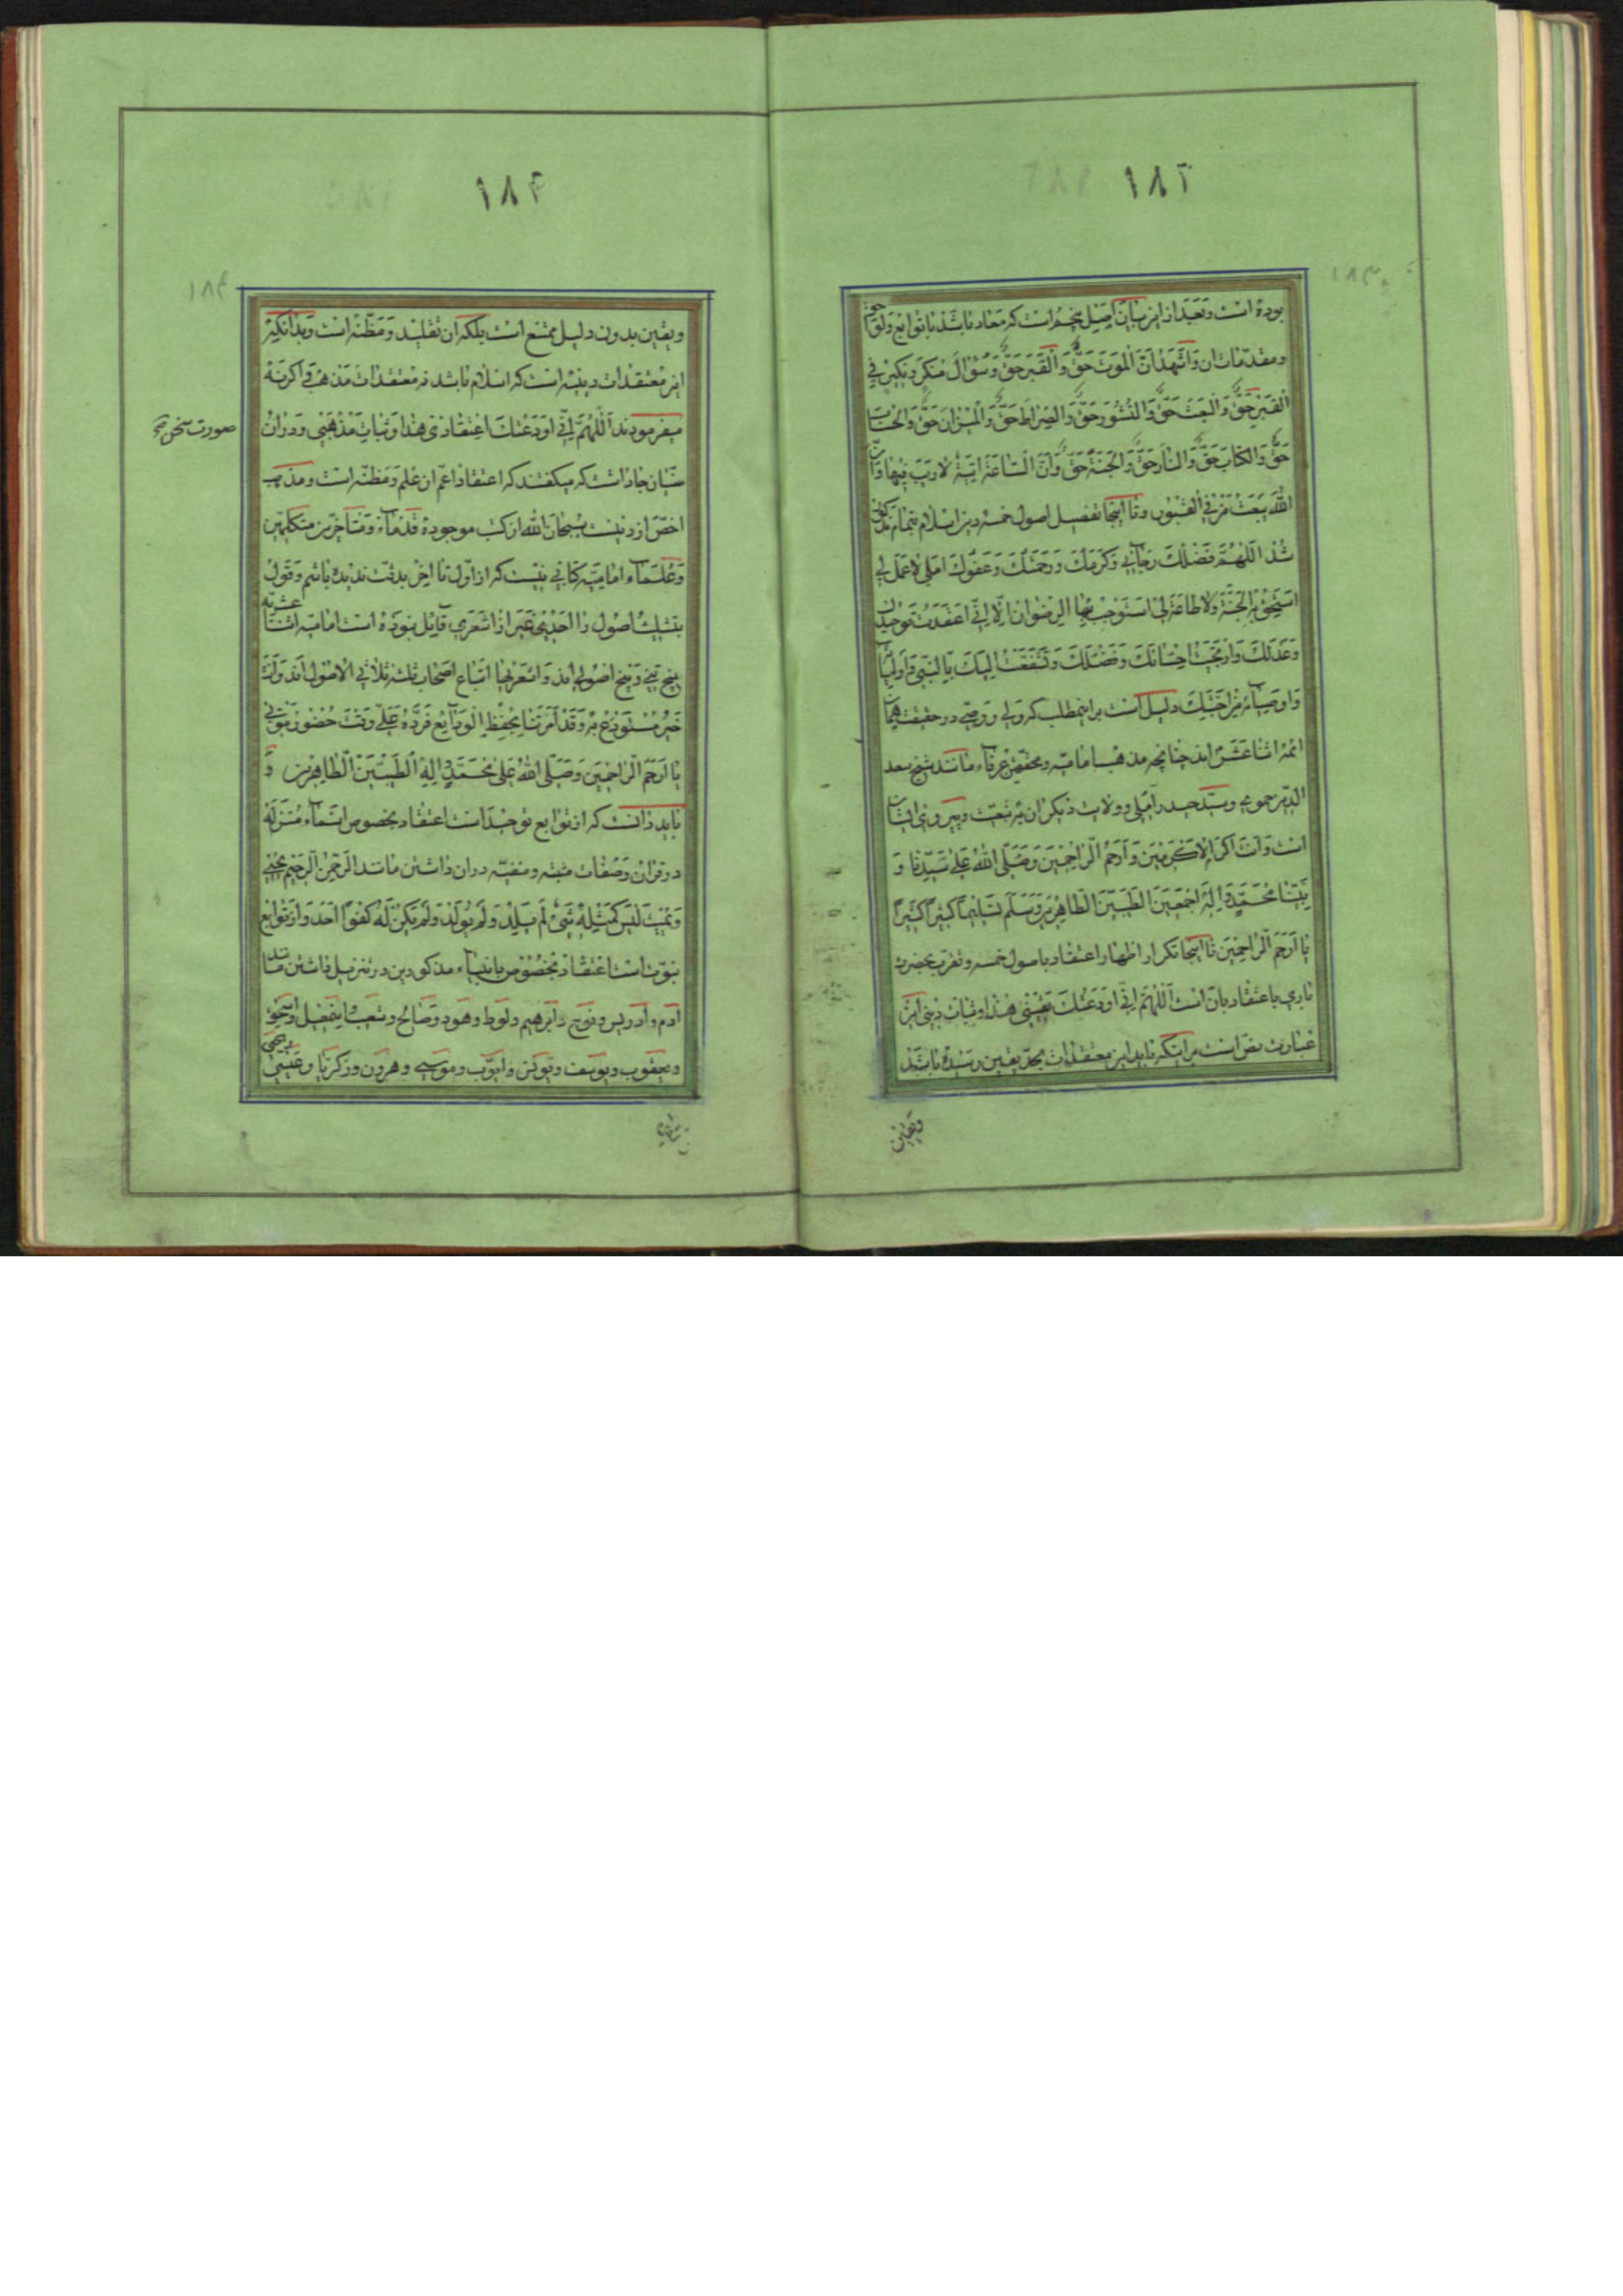 ۱۸۳
بوده است و بعد از این بیان اصل پنجم است که معاد باشد با توابع و لواحق
و مقدمات ان وَاَشْهَدُ اَنَّ الْمَوْتَ حَقٌّ وَالْقَبْرَ حَقٌّ وَسُؤالَ مُنْكَرٍ وَنَكِيرٍ فِي
الْقَبْرِ حَقٌّ وَالْبَعْثَ حَقٌّ وَالنُّشُورَ حَقٌّ وَالصِّرَاطَ حَقٌّ وَالْمِيزَانَ حَقٌّ وَالْحِسَابَ
حَقٌّ وَالْكِتَابَ حَقٌّ وَالنَّارَ حَقٌّ وَالْجَنَّةَ حَقٌّ وَاَنَّ السَّاعَةَ اٰتِيَةٌ لَارَيْبَ فِيهَا وَاَنَّ
اللّٰهَ يَبْعَثُ مَنْ فِي الْقُبُورِ و تا اینجا تفصیل اصول خمسه دین اسلام بتمام مذکور
شد اَللّٰهُمَّ فَضْلُكَ رَجَائِي وَكَرَمُكَ وَرَحْمَتُكَ وَعَفْوُكَ اَمَلِي لَاعَمَلَ لِي
اَسْتَحِقُّ بِهِ الْجَنَّةَ وَلَاطَاعَةَ لِي اَسْتَوْجِبُ بِهَا الرِّضْوَانَ اِلَّا اَنِّي اعْتَقَدْتُ تَوْحِيدَكَ
وَعَدْلَكَ وَارْتَجَيْتُ اِحْسَانَكَ وَفَضْلَكَ وَتَشَفَّعْتُ اِلَيْكَ بِالنَّبِيِّ وَاَوْلِيَاءِ
وَاَوْصِيَاءِ مِنْ اَحِبَّتِكَ دلیل است بر اینمطلب که ولی و وصی در حقیقت همان
ائمه اثنا عشر اند چنانچه مذهب امامیه و محققین عرفاء مانند شیخ سعد
الدین حمویی و سید حیدر آملی و ولایت دیگران به تبعیت و پیروی ایشان
است وَاَنْتَ اَكْرَمُ الْاَكْرَمِينَ وَاَرْحَمُ الرَّاحِمِينَ وَصَلَّى اللّٰهُ عَلَى سَيِّدِنَا وَ
نَبِيِّنَا مُحَمَّدٍ وَاٰلِهِ اَجْمَعِينَ الطَّيِّبِينَ الطَّاهِرِينَ وَسَلَّمَ تَسْلِيمًا كَثِيرًا كَثِيرًا
يَا اَرْحَمَ الرَّاحِمِينَ تا اینجا تکرار اظهار اعتقاد باصول خمسه و تقرب بحضرت
باری باعتقاد بان است اَللّٰهُمَّ اِنِّي اَوْدَعْتُكَ يَقِينِي هٰذَا وَثَبَاتَ دِينِي این
عبارت نص است بر اینکه باید این معتقدات بحد یقین رسیده باشد
۱۸۴
و یقین بدون دلیل ممتنع است بلکه ان تقلید و مظنه است و بدانکه
این معتقدات دینیه است که اسلام باشد نه معتقدات مذهب و اگر نه
میفرمودند اَللّٰهُمَّ اِنِّي اَوْدَعْتُكَ اِعْتِقَادِي هٰذَا وَثَبَاتَ مَذْهَبِي و در ان
سنیان جار است که میگفتند که اعتقاد اعم از علم و مظنه است و مذهب
اخص از دینست سبحان الله از کتب موجوده قدماء و متأخرین متکلمین
و علماء امامیه کتابی نیست که از اول تا اخر بدقت ندیده باشم و قول
بتثلیث اصول را احدی غیر از اشعری قایل نبوده است امامیه اثنا عشریه
پنج تنی و پنج اصولی اند و اشعریها اتباع اصحاب ثلثه ثلاثی الاصول اند وَاَنْتَ
خَيْرُ مُسْتَوْدَعٍ بِهِ وَقَدْ اَمَرْتَنَا بِحِفْظِ الْوَدَايِعِ فَرُدَّهُ عَلَيَّ وَقْتَ حُضُورِ مَوْتِي
يَا اَرْحَمَ الرَّاحِمِينَ وَصَلَّى اللّٰهُ عَلَى مُحَمَّدٍ وَاٰلِهِ الطَّيِّبِينَ الطَّاهِرِينَ و
باید دانست که از توابع توحید است اعتقاد بخصوص اسماء منزله
در قران و صفات مثبته و منفیه در ان داشتن مانند الرحمن الرحیم یحیی
و یمیت لَيْسَ كَمِثْلِهِ شَيْءٌ لَمْ يَلِدْ وَلَمْ يُولَدْ وَلَمْ يَكُنْ لَهُ كُفُوًا اَحَدٌ و از توابع
نبوت است اعتقاد بخصوص بانبیاء مذکورین در تنزیل داشتن مانند
آدم و ادریس و نوح و ابرهیم و لوط و هود و صالح و شعیب و اسمعیل و اسحق
و یعقوب و یوسف و یونس و ایوب و موسی و هرون و زکریا و عیسی و یحیی